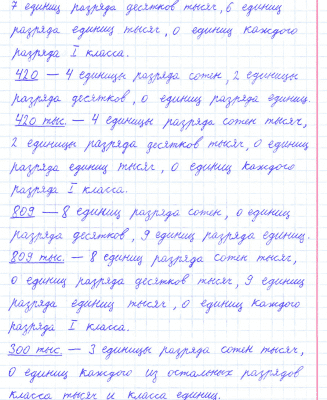 7 единиц разряда десятков тысяч, 6 единиц
разряда единиц тысяч, 0 единиц каждого
разряда I класса.
420 — 4 единицы разряда сотен, 2 единицы
разряда десятков, 0 единиц разряда единиц.
420 тыс. — 4 единицы разряда сотен тысяч,
2 единицы разряда десятков тысяч, 0 единиц
разряда единиц тысяч, 0 единиц каждого
разряда I класса.
809 — 8 единиц разряда сотен, 0 единиц
разряда десятков, 9 единиц разряда единиц.
809 тыс. — 8 единиц разряда сотен тысяч,
0 единиц разряда десятков тысяч, 9 единиц
разряда единиц тысяч, 0 единиц каждого
разряда I класса.
300 тыс. — 3 единицы разряда сотен тысяч,
0 единиц каждого из остальных разрядов
класса тысяч и класса единиц.